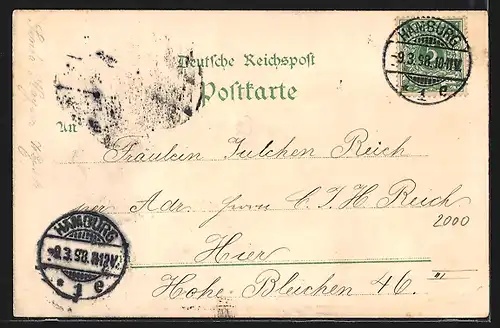 Deutsche Reichspost
Postkarte
HAMBURG
9.3.98.10-11V.
* 1 e
An
Fräulein Julchen Reich
per Adr. Herrn C. J. H. Reich
2000
Hier
Hohe Bleichen 46. III
HAMBURG
9.3.98.11-12V.
* 1 e